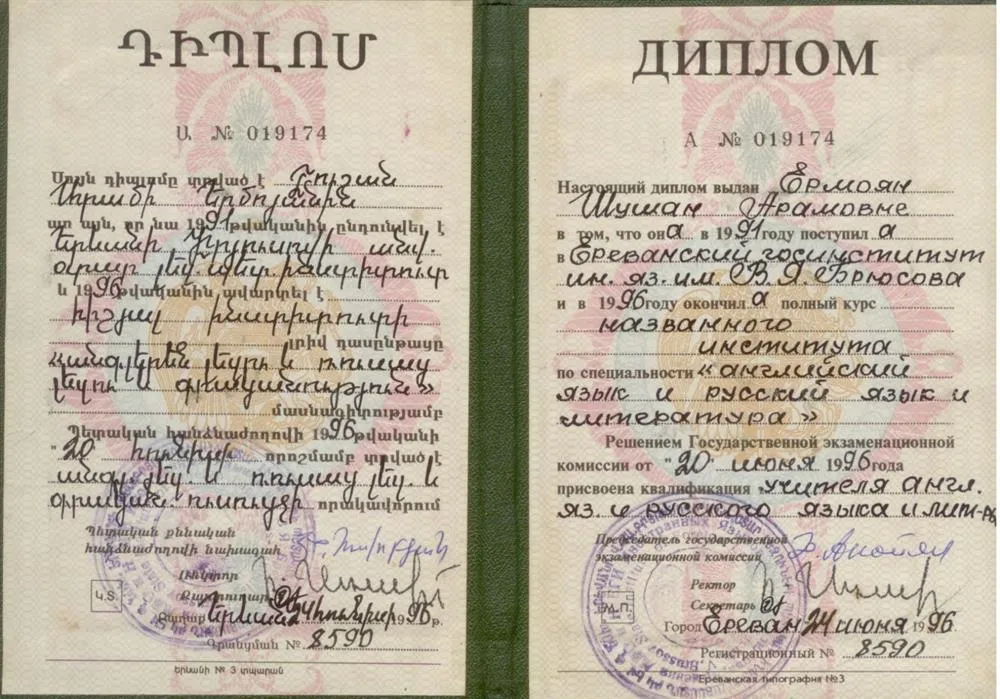 ԴԻՊԼՈՄ
Ա № 019174
Սույն դիպլոմը տրված է Շուշան
Արամի Երմոյանին
առ այն, որ նա 1991 թվականին ընդունվել է
Երևանի Վ. Բրյուսովի անվ.
օտար լեզ. պետ. ինստիտուտ
և 1996 թվականին ավարտել է
հիշյալ ինստիտուտի
լրիվ դասընթացը
«անգլերեն լեզու և ռուսաց
լեզու և գրականություն»
մասնագիտությամբ
Պետական հանձնաժողովի 1996 թվականի
"20" հունիսի որոշմամբ տրված է
անգլ. լեզ. և ռուսաց լեզ. և
գրական. ուսուցչի որակավորում
Պետական քննական
հանձնաժողովի նախագահ
Ռեկտոր
Քարտուղար
Կ.Տ.
Քաղաք Երևան 24 հունիսի 1996 թ.
Գրանցման № 8590
Երևանի № 3 տպարան
ДИПЛОМ
А № 019174
Настоящий диплом выдан Ермоян
Шушан Арамовне
в том, что она в 1991 году поступил а
в Ереванский госинститут
ин. яз. им. В. Я. Брюсова
и в 1996 году окончил а полный курс
названного
института
по специальности «английский
язык и русский язык и
литература»
Решением Государственной экзаменационной
комиссии от "20" июня 1996 года
присвоена квалификация учителя англ.
яз. и русского языка и лит-ры
Председатель государственной
экзаменационной комиссии
Ректор
Секретарь
М.П.
Город Ереван 24 июня 1996
Регистрационный № 8590
Ереванская типография №3